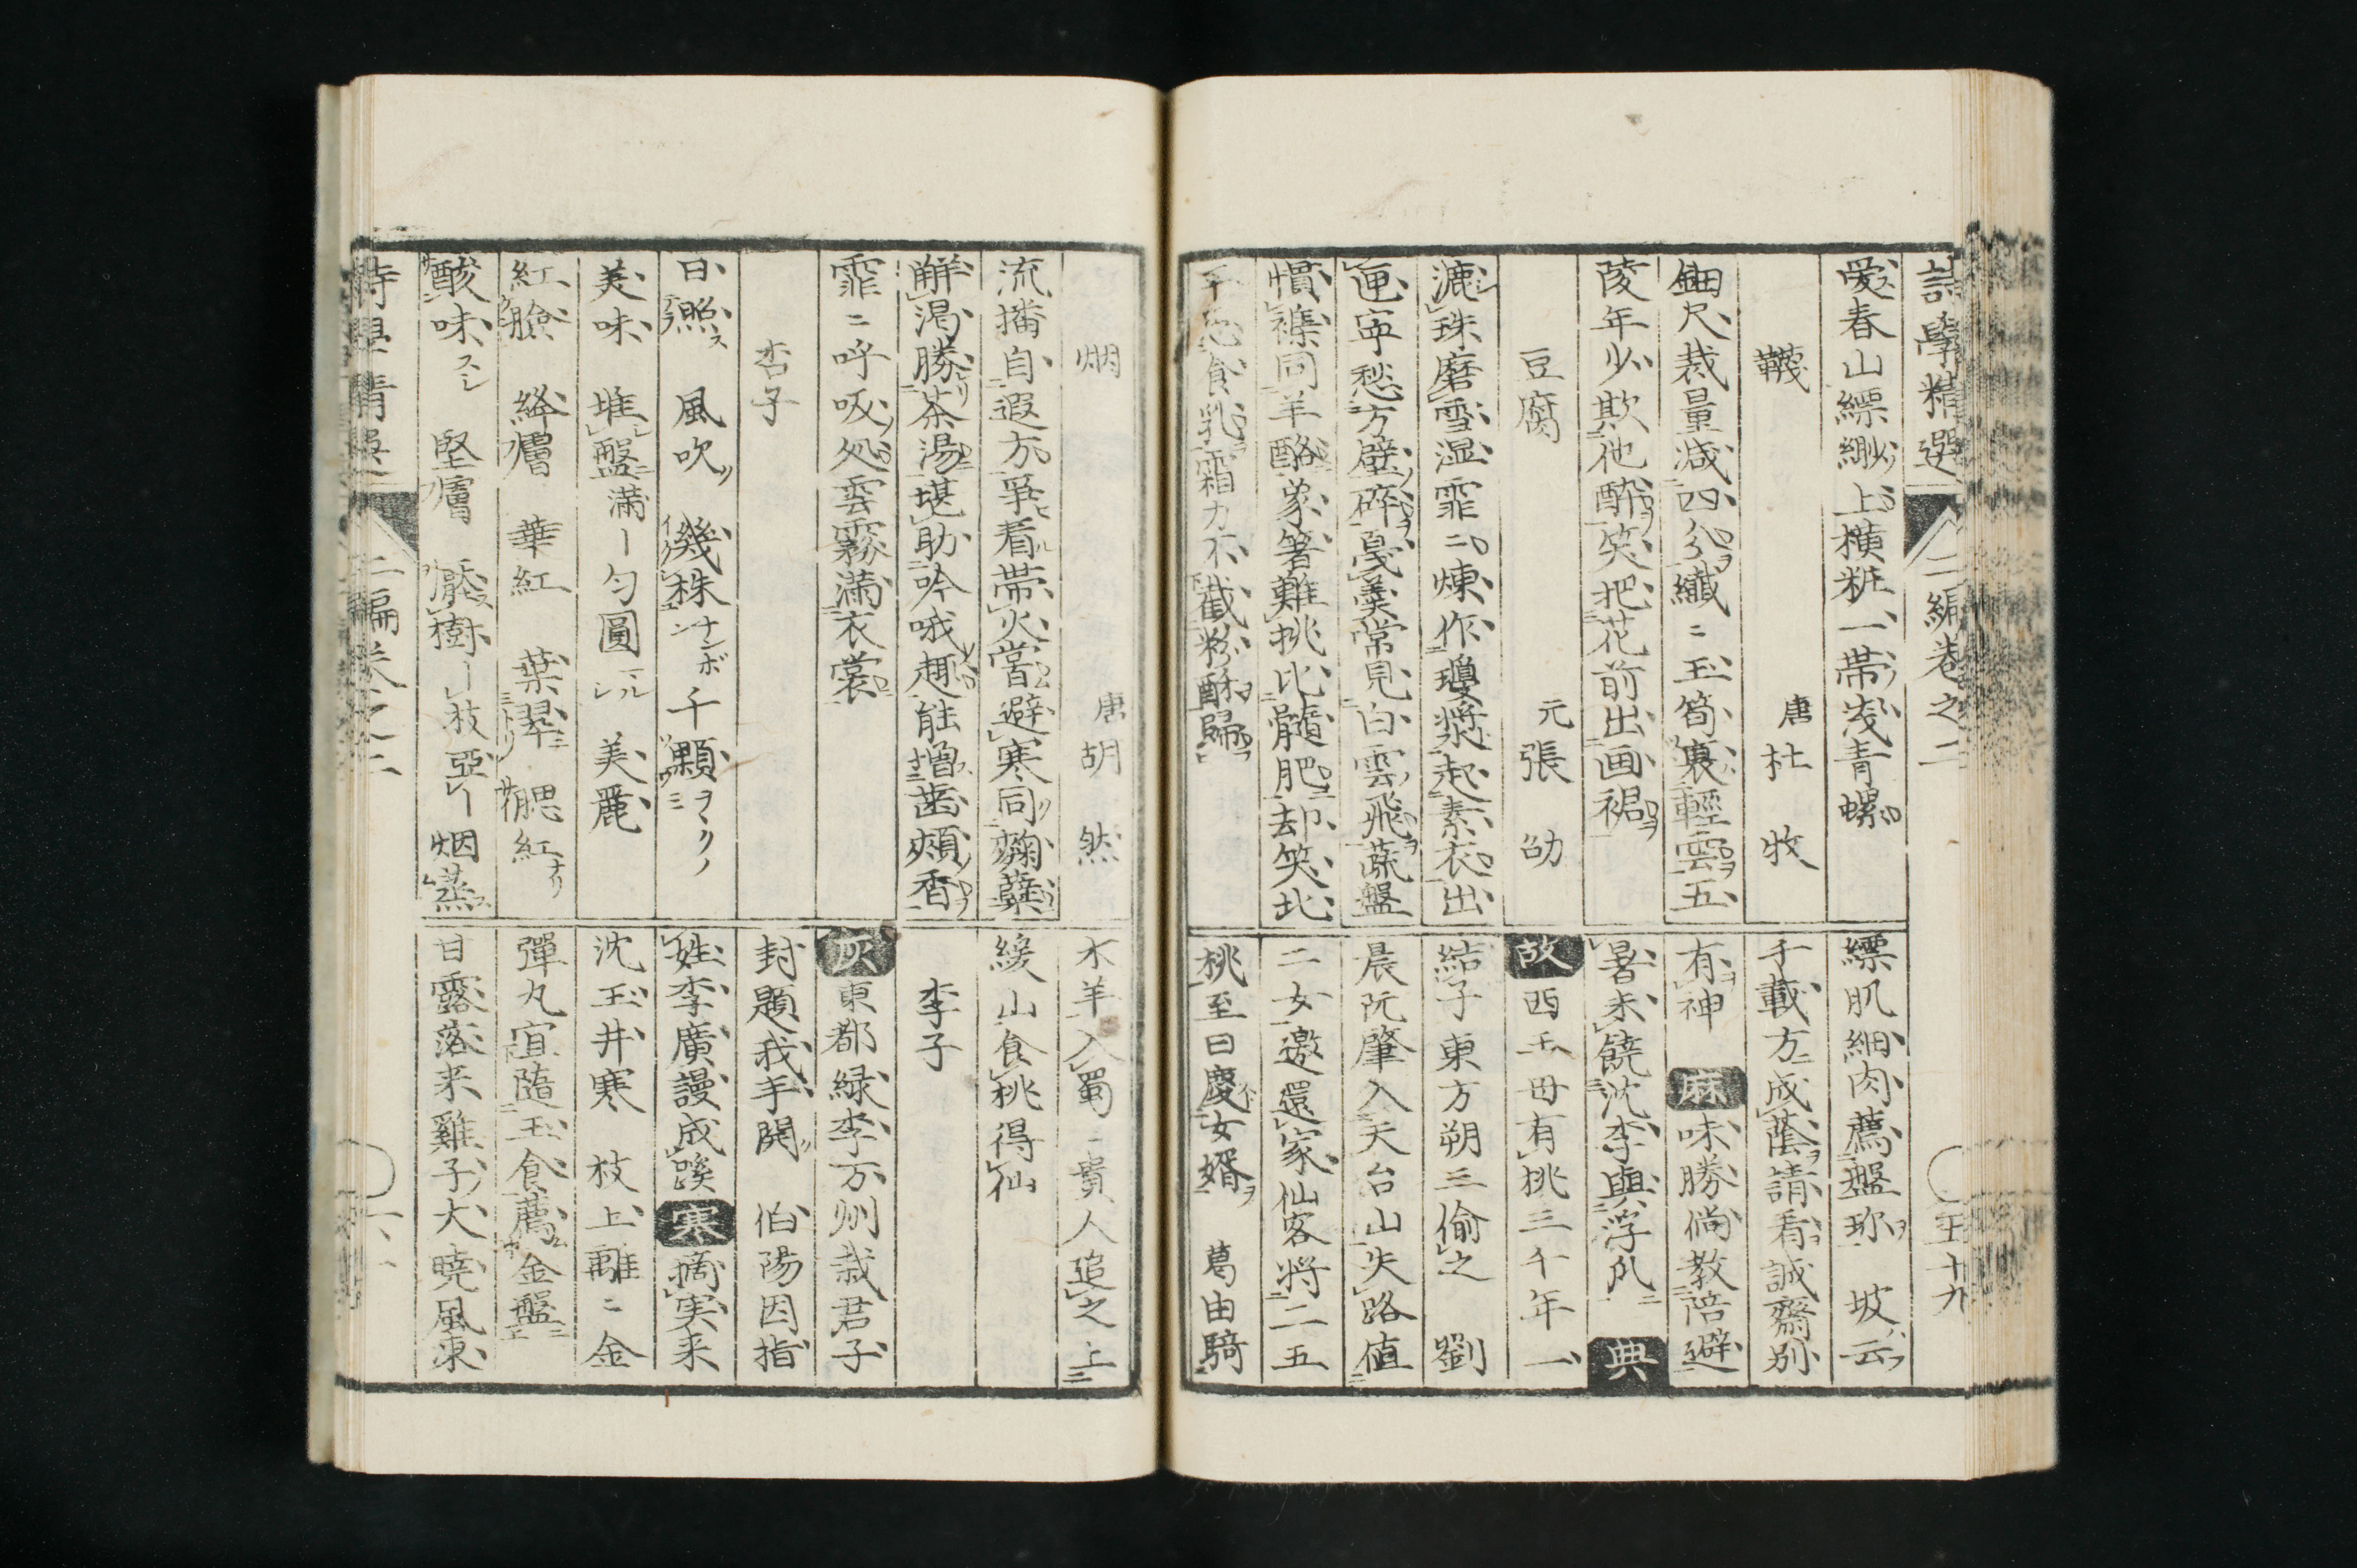 詩學精選 二編卷之二 五十九
愛春山縹緲上横粧一帯浅青螺
韈 唐 杜牧
鈿尺裁量減四分纎ニ玉笋裏輕雲五
陵年少欺他酔笑把花前出画裙
豆腐 元 張劭
漉珠磨雪湿霏ニ煉作瓊漿起素衣出
匣寧愁方璧碎憂羹常見白雲飛蔬盤
慣雜同羊酪象箸難挑比髓肥却笑北
平思食乳霜刀不截粉酥歸
縹肌細肉薦盤珎 坡云
千載方成蔭請看誠齋別
有神 麻 味勝倘教陪避
暑未饒沈李與浮瓜 典
故 西王母有桃三千年一
結子東方朔三偷之 劉
晨阮肇入天台山失路値
二女邀還家仙客將二五
桃至曰慶女婿 葛由騎
烟 唐 胡然
流播自遐方爭看帯火嘗避寒同麹蘖
解渇勝茶湯堪助吟哦趣能増齒頰香
霏ニ呼吸処雲霧満衣裳
李子
日照ス 風吹 幾株ナンボ 千顆ヲヽクノミ
美味 堆盤満〡 匀圓 美麗
紅臉 絳膚 葉翠ニ 腮紅ナリ
酸味スシ 堅膚 樹〡 枝亞〡 烟蒸
木羊入蜀ニ貴人追之上
綏山食桃得仙
李子
灰 東都緑李万州栽君子
封題我手開 伯陽因指
姓李廣謾成蹊 寒 摘実来
沈玉井寒 枝上離ニ金
彈丸宜隨玉食薦金盤
甘露落来雞子大曉風凍
詩學精選 二編卷之二